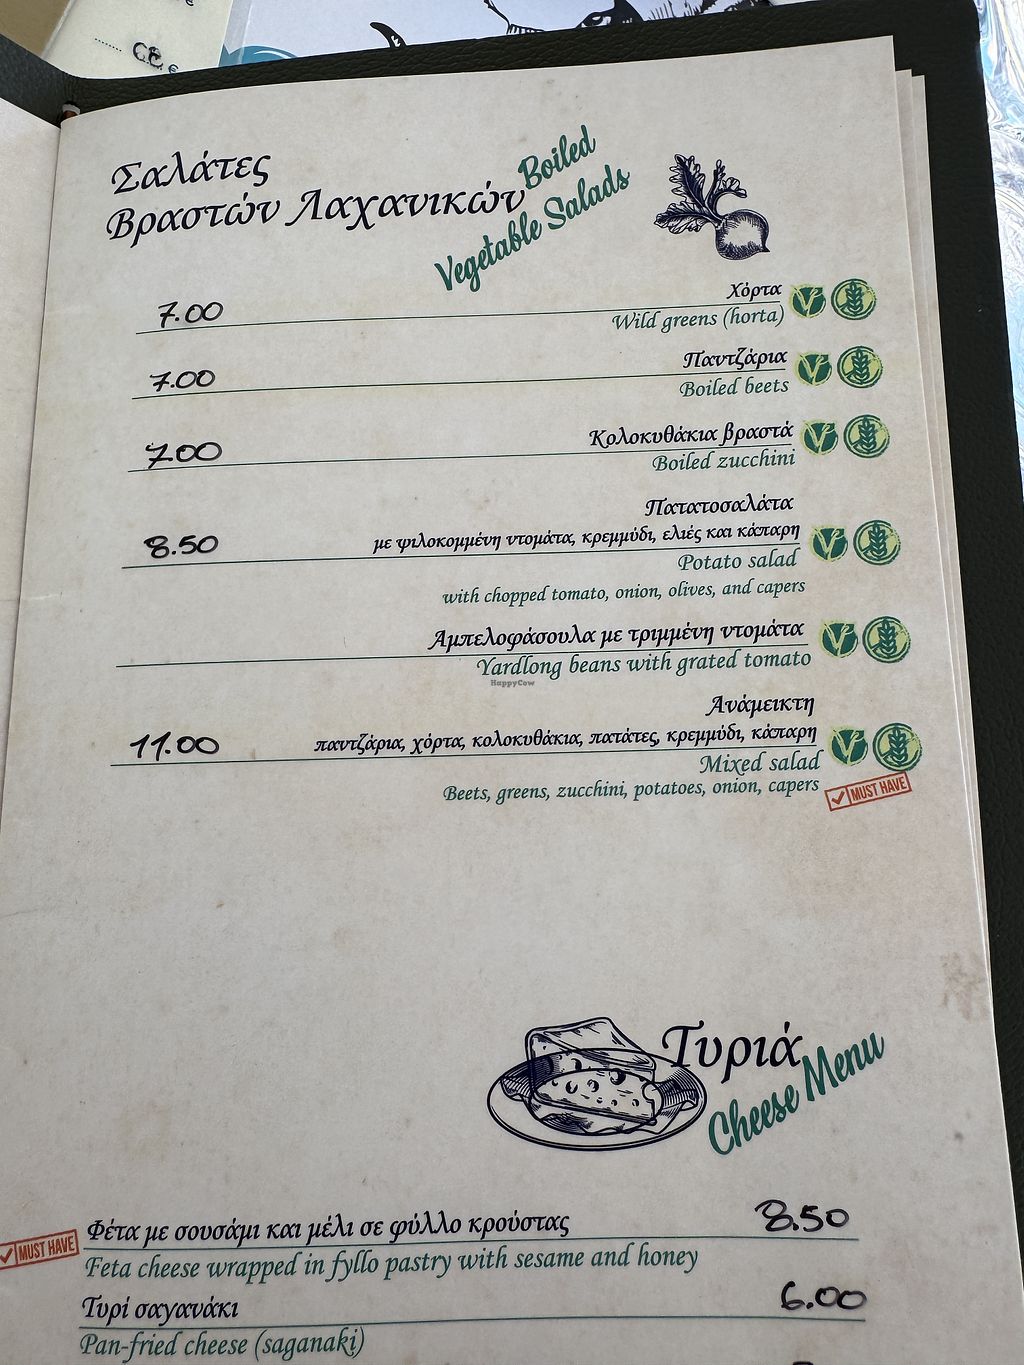 Σαλάτες
Βραστών Λαχανικών
Boiled
Vegetable Salads
7.00 Χόρτα
Wild greens (horta)
7.00 Παντζάρια
Boiled beets
7.00 Κολοκυθάκια βραστά
Boiled zucchini
Πατατοσαλάτα
8.50 με ψιλοκομμένη ντομάτα, κρεμμύδι, ελιές και κάπαρη
Potato salad
with chopped tomato, onion, olives, and capers
Αμπελοφάσουλα με τριμμένη ντομάτα
Yardlong beans with grated tomato
HappyCow
Ανάμεικτη
11.00 παντζάρια, χόρτα, κολοκυθάκια, πατάτες, κρεμμύδι, κάπαρη
Mixed salad
Beets, greens, zucchini, potatoes, onion, capers
MUST HAVE
Τυριά
Cheese Menu
MUST HAVE Φέτα με σουσάμι και μέλι σε φύλλο κρούστας 8.50
Feta cheese wrapped in fyllo pastry with sesame and honey
Τυρί σαγανάκι 6.00
Pan-fried cheese (saganaki)